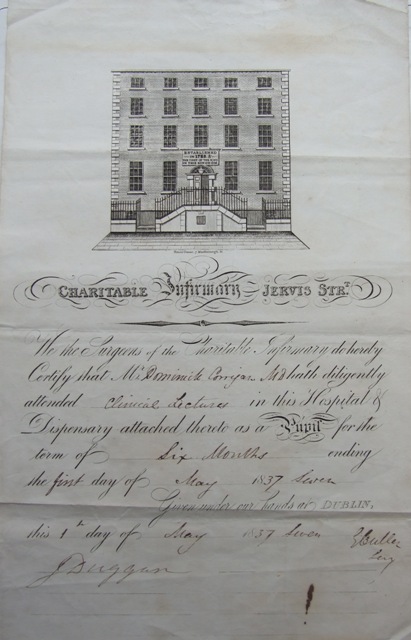 ESTABLISHED
1728
CHARITABLE Infirmary JERVIS STRT.
We the Surgeons of the Charitable Infirmary do hereby
Certify that Mr. Dominick Corrigan MD hath diligently
attended Clinical Lectures in this Hospital &
Dispensary attached thereto as a Pupil for the
term of Six Months ending
the first day of May 1837 Seven
Given under our hands at DUBLIN,
this 1st day of May 1837 Seven
J Duggan